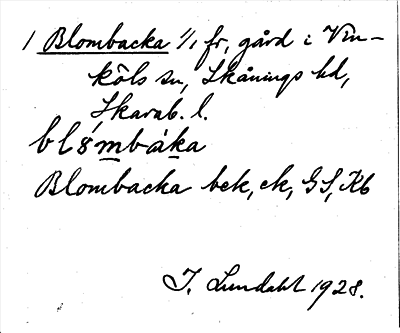 1 Blombacka 1/1 fr, gård i Vin-
köls sn, Skånings hd,
Skarab. l.
bl8mbàka
Blombacka bek, ek, GS, Kb
J. Lundahl 1928.